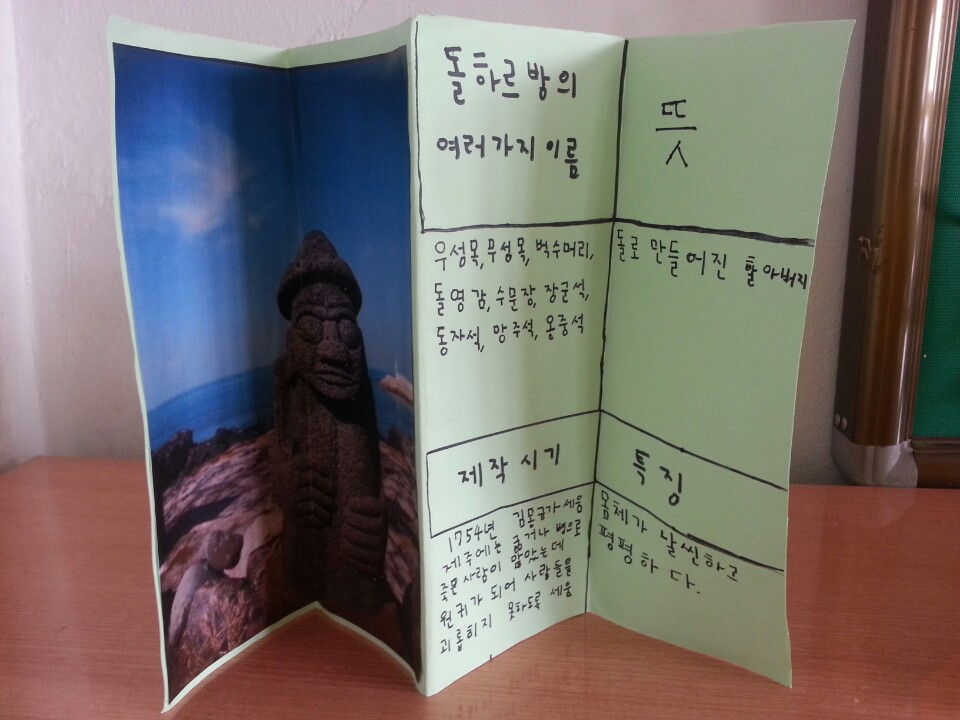 돌하르방의
여러가지 이름
우성목, 무성목, 벅수머리,
돌영감, 수문장, 장군석,
동자석, 망주석, 옹중석
뜻
돌로 만들어진 할아버지
제작 시기
1754년 김몽규가 세움
제주에는 굶거나 병으로
죽은 사람이 많았는데
원귀가 되어 사람들을
괴롭히지 못하도록 세움
특징
몸체가 날씬하고
평평하다.